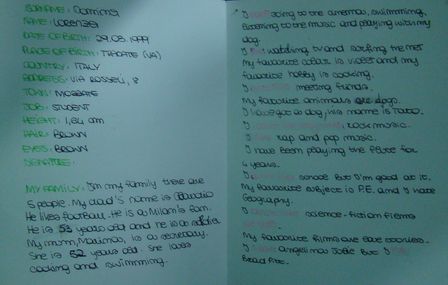 SURNAME:
NAME: LORENZO
DATE OF BIRTH: 29.08.1999
PLACE OF BIRTH: TRADATE (VA)
COUNTRY: ITALY
ADDRESS: VIA ROSSELLI, 8
TOWN: MOZZATE
JOB: STUDENT
HEIGHT: 1,64 cm
HAIR: BROWN
EYES: BROWN
SIGNATURE:
MY FAMILY: In my family there are
5 people. My dad's name is
He likes football. He is a Milan's fan.
He is 53 years old and he is a
My mum, is a secretary.
She is 52 years old. She loves
cooking and swimming.
I going to the cinema, swimming,
listening to the music and playing with my
dog.
I watching tv and surfing the net
My favourite colour is violet and my
favourite hobby is cooking.
I meeting friends.
My favourite animals are dogs.
I have got a dog, his name is
rock music.
rap and pop music.
I have been playing the flute for
4 years.
I school but I'm good at it.
My favourite subject is P.E. and I hate
Geography.
science-fiction films
My favourite films are love stories.
I Angelina Jolie but I
Brad Pitt.